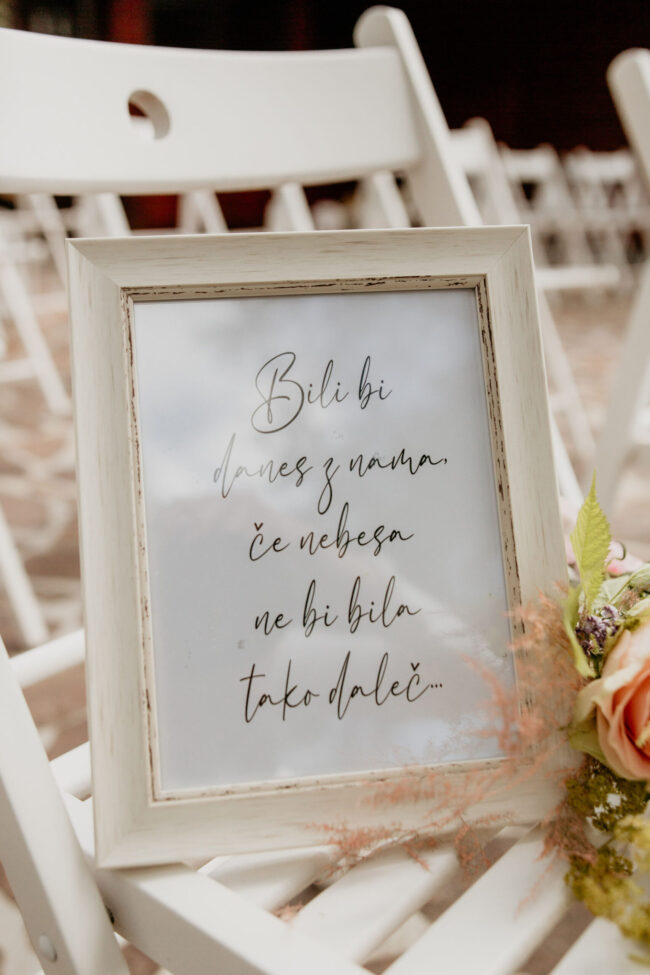 Bili bi
danes z nama,
če nebesa
ne bi bila
tako daleč...